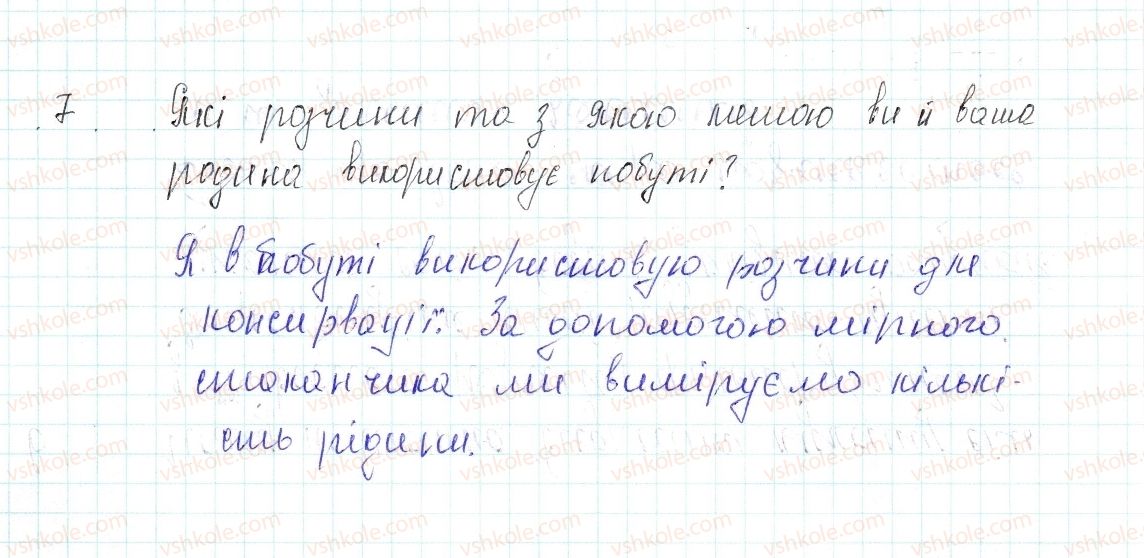 7. Які розчини та з якою метою ви й ваша
родина використовує побуті?
Я в побуті використовую розчини для
консирвації. За допомогою мірного
стаканчика ми виміруємо кількі-
сть рідини.